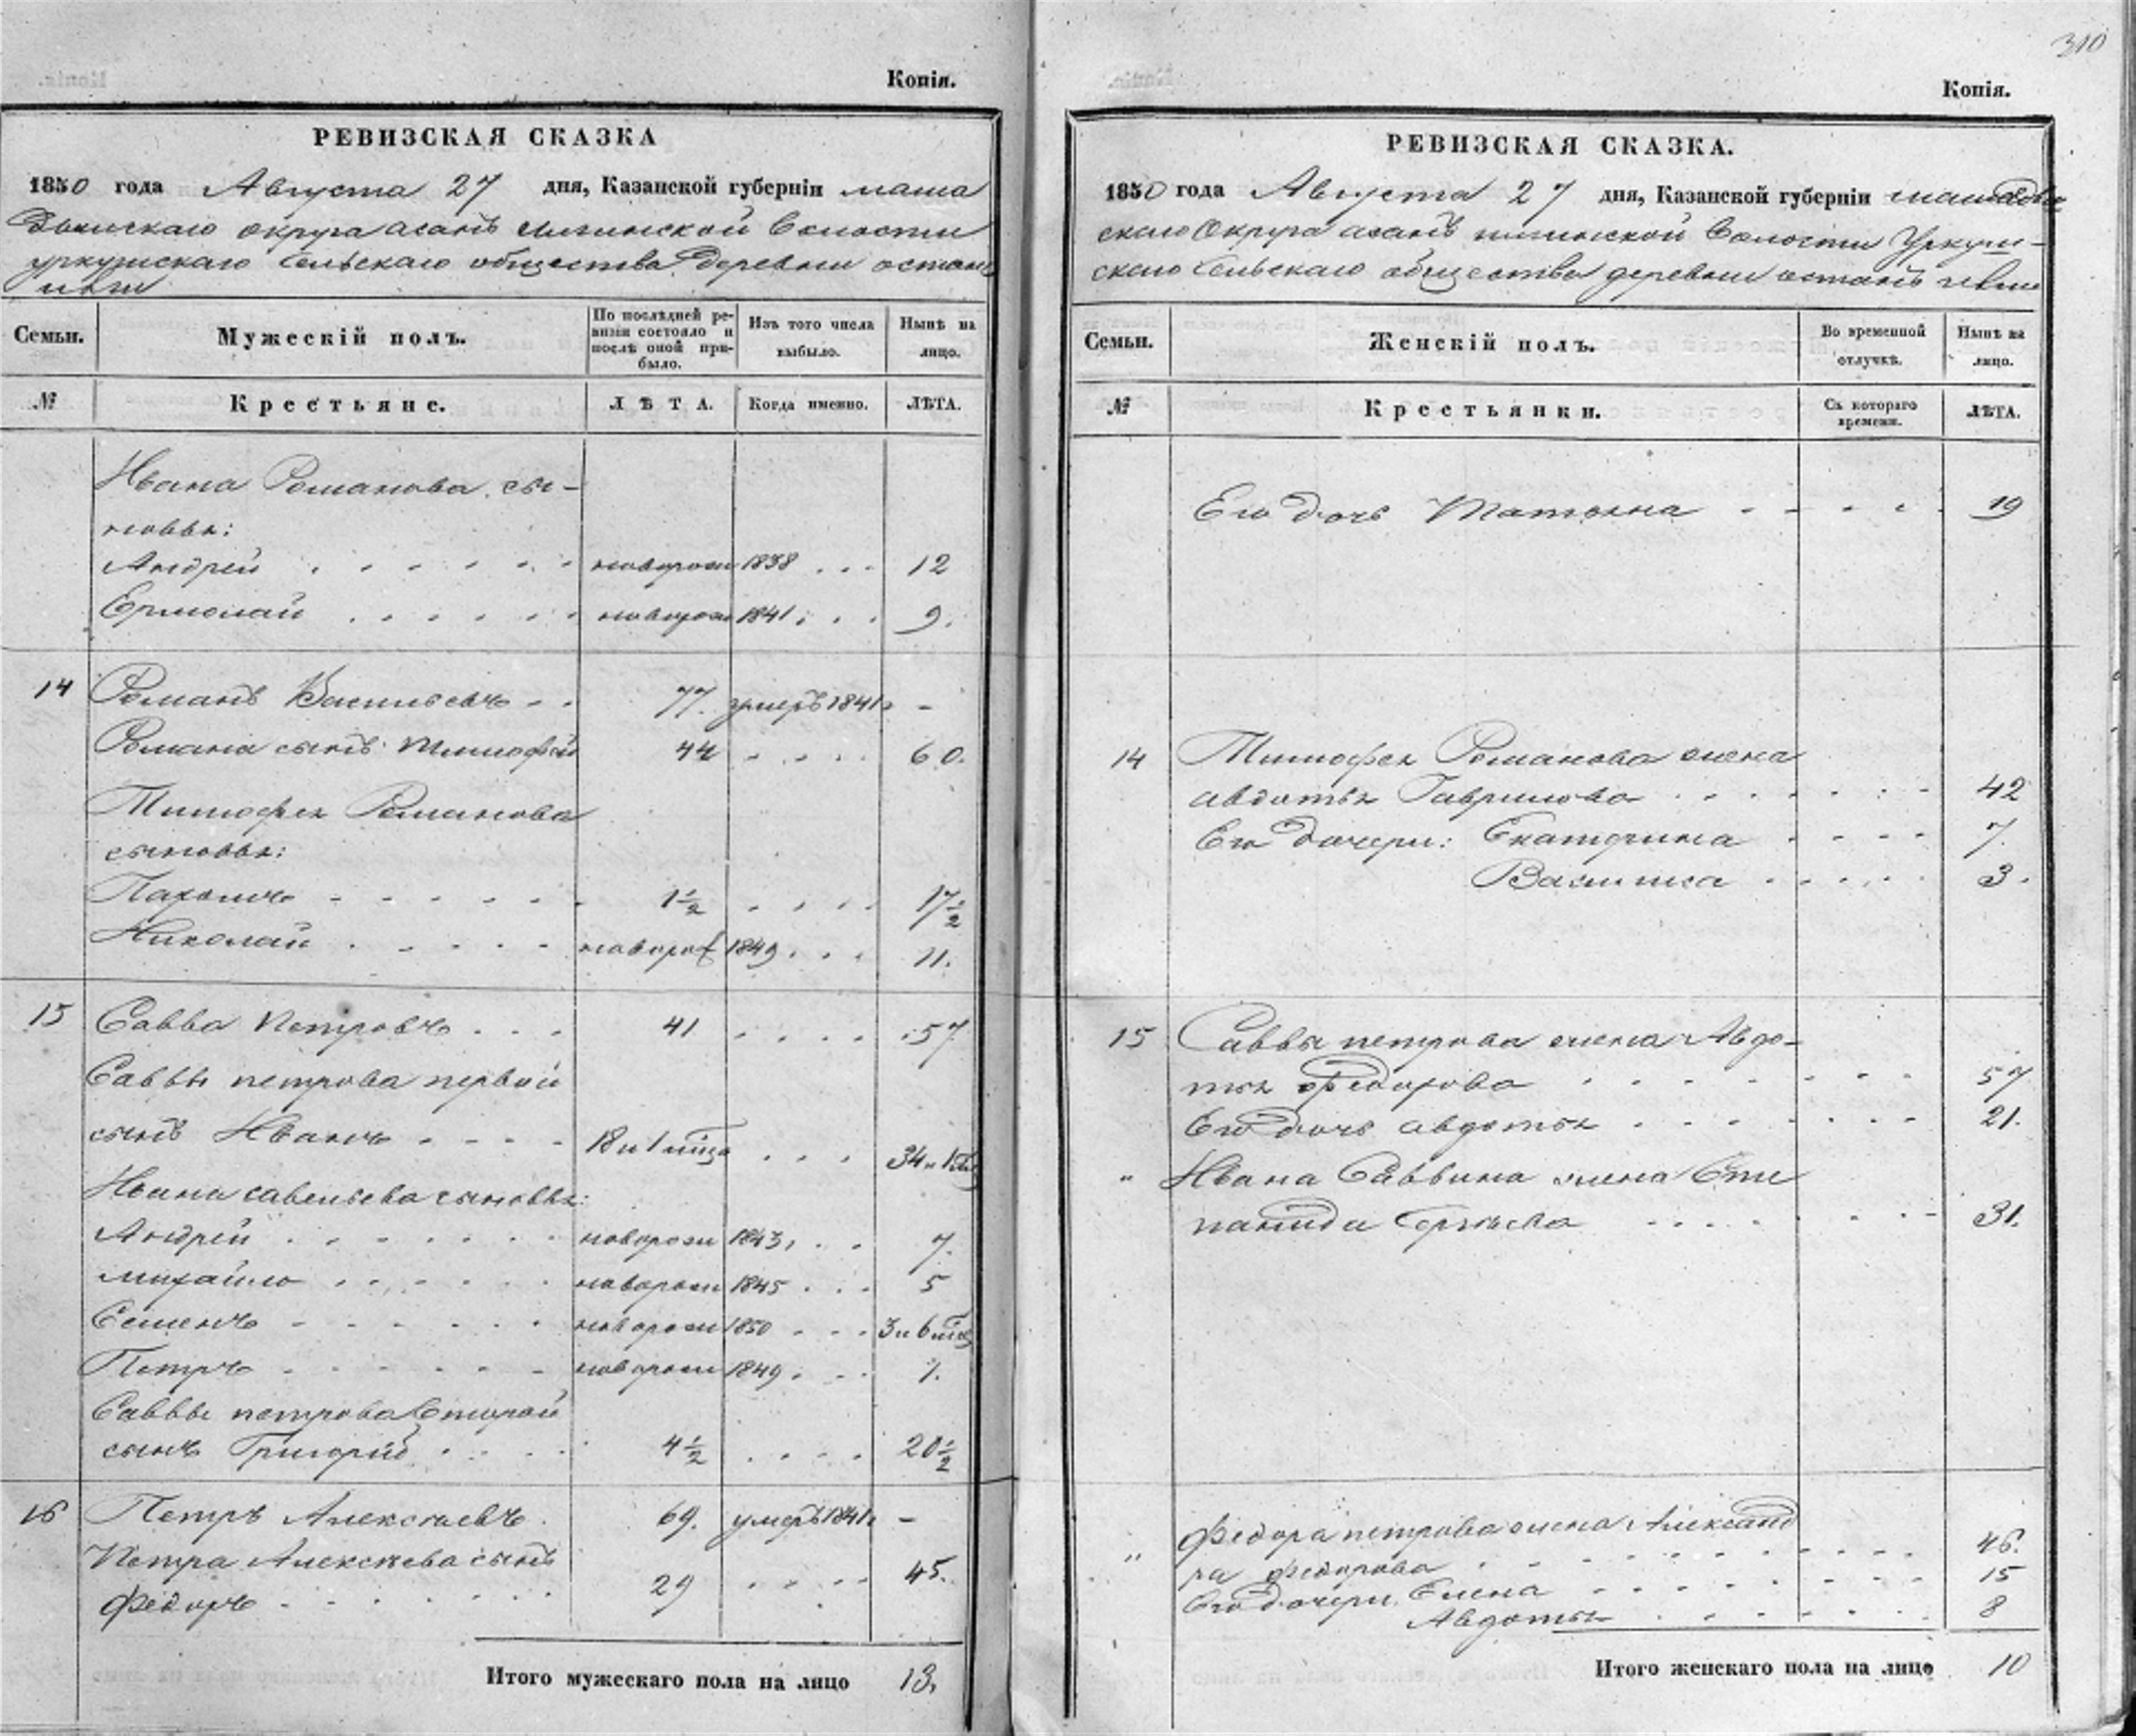 310
Копія.
РЕВИЗСКАЯ СКАЗКА
1850 года Августа 27 дня, Казанской губерніи мама
дышскаго округа асанъ елгинской волости
уркушскаго сельскаго общества деревни останъ
Семьи.
Мужескій полъ.
По послѣдней ре-
визіи состояло и
послѣ оной при-
было.
Изъ того числа
выбыло.
Нынѣ на
лицо.
№
Крестьяне.
ЛѢТА.
Когда именно.
ЛѢТА.
Ивана Романова сы-
новья:
Андрей новорож 1838 12
Ермолай новорож 1841 9.
14 Романъ Васильевъ 77. умеръ 1841 -
Романа сынъ Тимофей 44 60.
Тимофея Романова
сыновья:
Пахомъ 1½ 17½
Николай новорож 1849 11.
15 Савва Петровъ 41 57
Саввы петрова первой
сынъ Иванъ 18 и 1 мѣся 34 и 1 мѣ
Ивана савельева сыновья:
Андрей новорож 1843 7.
михайло новорож 1845 5
Семенъ новорож 1850 3 и 6 мѣс
Петръ новорож 1849 1.
Саввы петрова Второй
сынъ Григорій 4½ 20½
16 Петръ Алексѣевъ 69. умеръ 1841 -
Петра Алексѣева сынъ
Федоръ 29 45.
Итого мужескаго пола на лицо 13.
Копія.
РЕВИЗСКАЯ СКАЗКА.
1850 года Августа 27 дня, Казанской губерніи мамадыш
скаго Округа асанъ елгинской Волости Уркуш-
скаго Сельскаго общества деревни останъ
Семьи.
Женскій полъ.
Во временной
отлучкѣ.
Нынѣ на
лицо.
№
Крестьянки.
Съ котораго
времени.
ЛѢТА.
Его дочь Татьяна 19
14 Тимофея Романова жена
авдотья Гаврилова 42
Его дочери: Екатерина 7.
Василиса 3.
15 Саввы петрова жена Авдо-
тья Федорова 57
Его дочь авдотья 21.
" Ивана Саввина жена Сте
панида Сергѣева 31.
" Федора петрова жена Александ
ра федорова 46.
Его дочери Елена 15
Авдотья 8
Итого женскаго пола на лицо 10